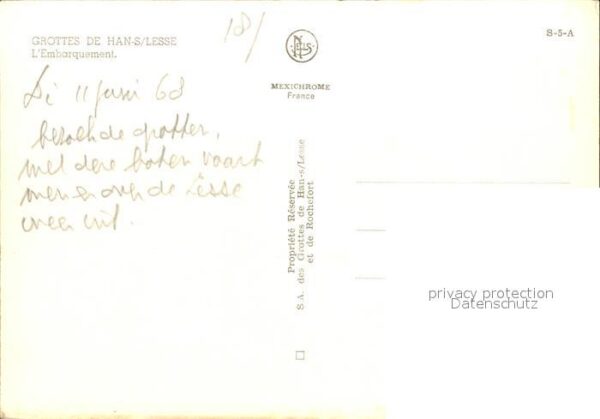 GROTTES DE HAN-S/LESSE
L'Embarquement.
18/
NELS
MEXICHROME
France
S-5-A
Di 11 juni 68
bezoek de grotten,
met deze boten vaart
men er over de Lesse
weer uit.
Propriété Réservée
S.A. des Grottes de Han-s/Lesse
et de Rochefort
privacy protection
Datenschutz